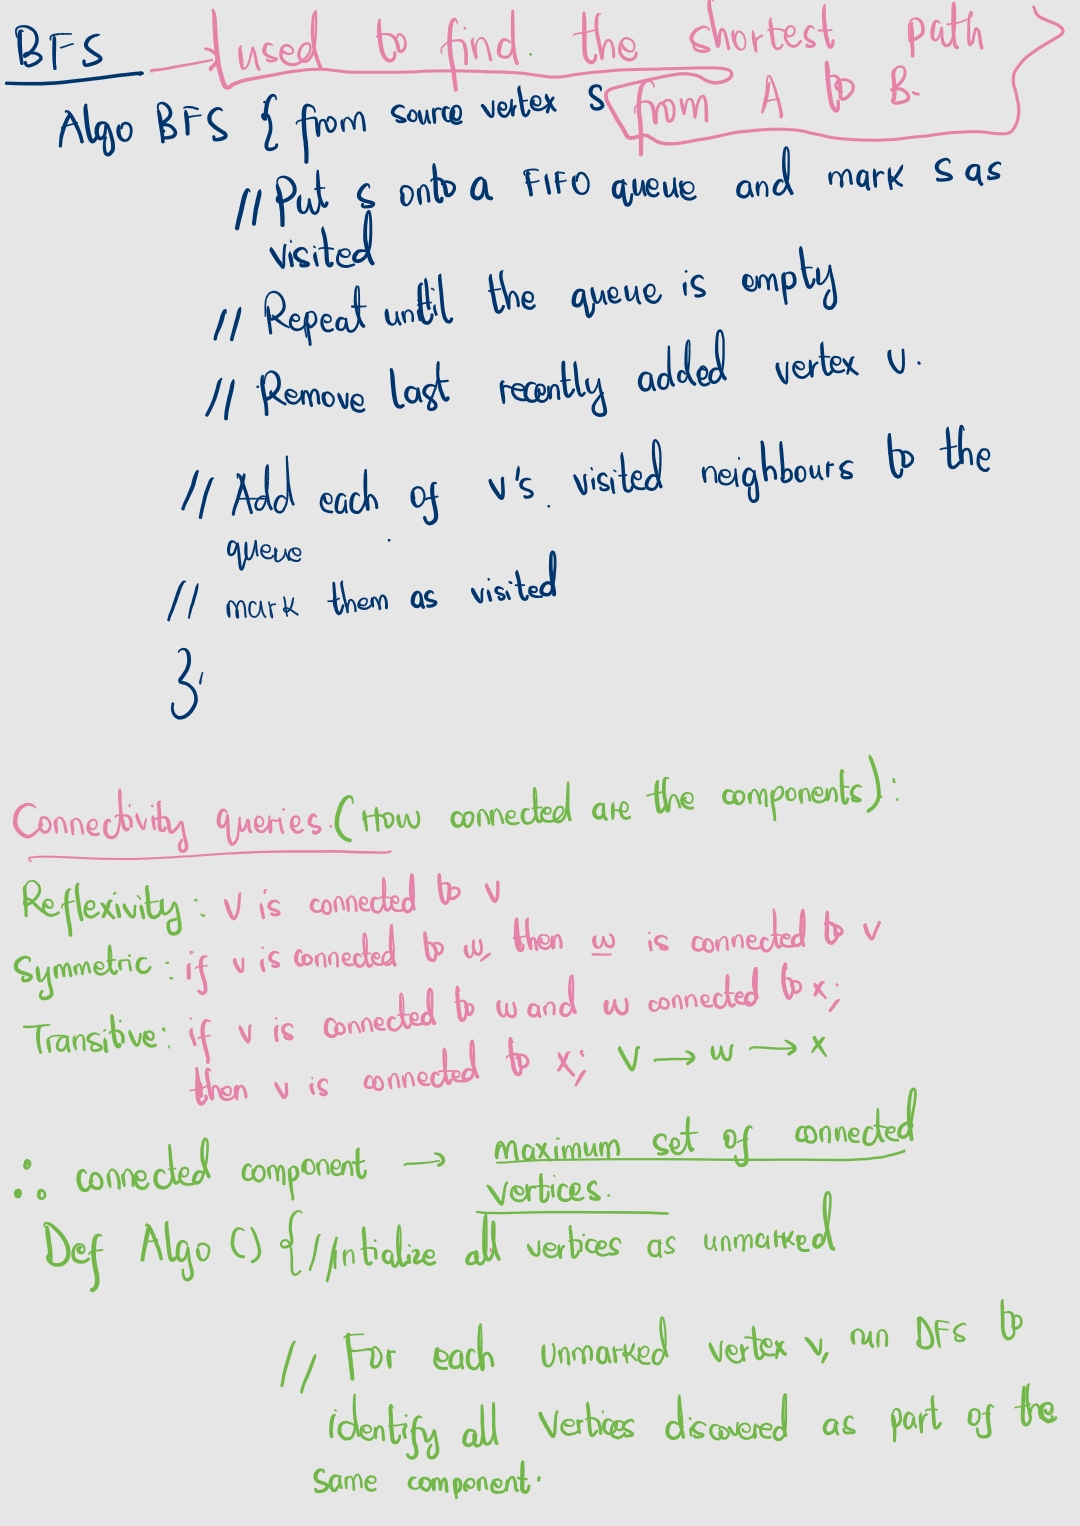 BFS → used to find the shortest path
from A to B.
Algo BFS { from source vertex s
// Put s onto a FIFO queue and mark s as
visited
// Repeat until the queue is empty
// Remove last recently added vertex v.
// Add each of v's visited neighbours to the
queue
// mark them as visited
};
Connectivity queries (How connected are the components):
Reflexivity: v is connected to v
Symmetric: if v is connected to w, then w is connected to v
Transitive: if v is connected to w and w connected to x;
then v is connected to x; V → w → x
∴ connected component → maximum set of connected
vertices.
Def Algo () { // intialize all vertices as unmarked
// For each unmarked vertex v, run DFS to
identify all vertices discovered as part of the
same component.